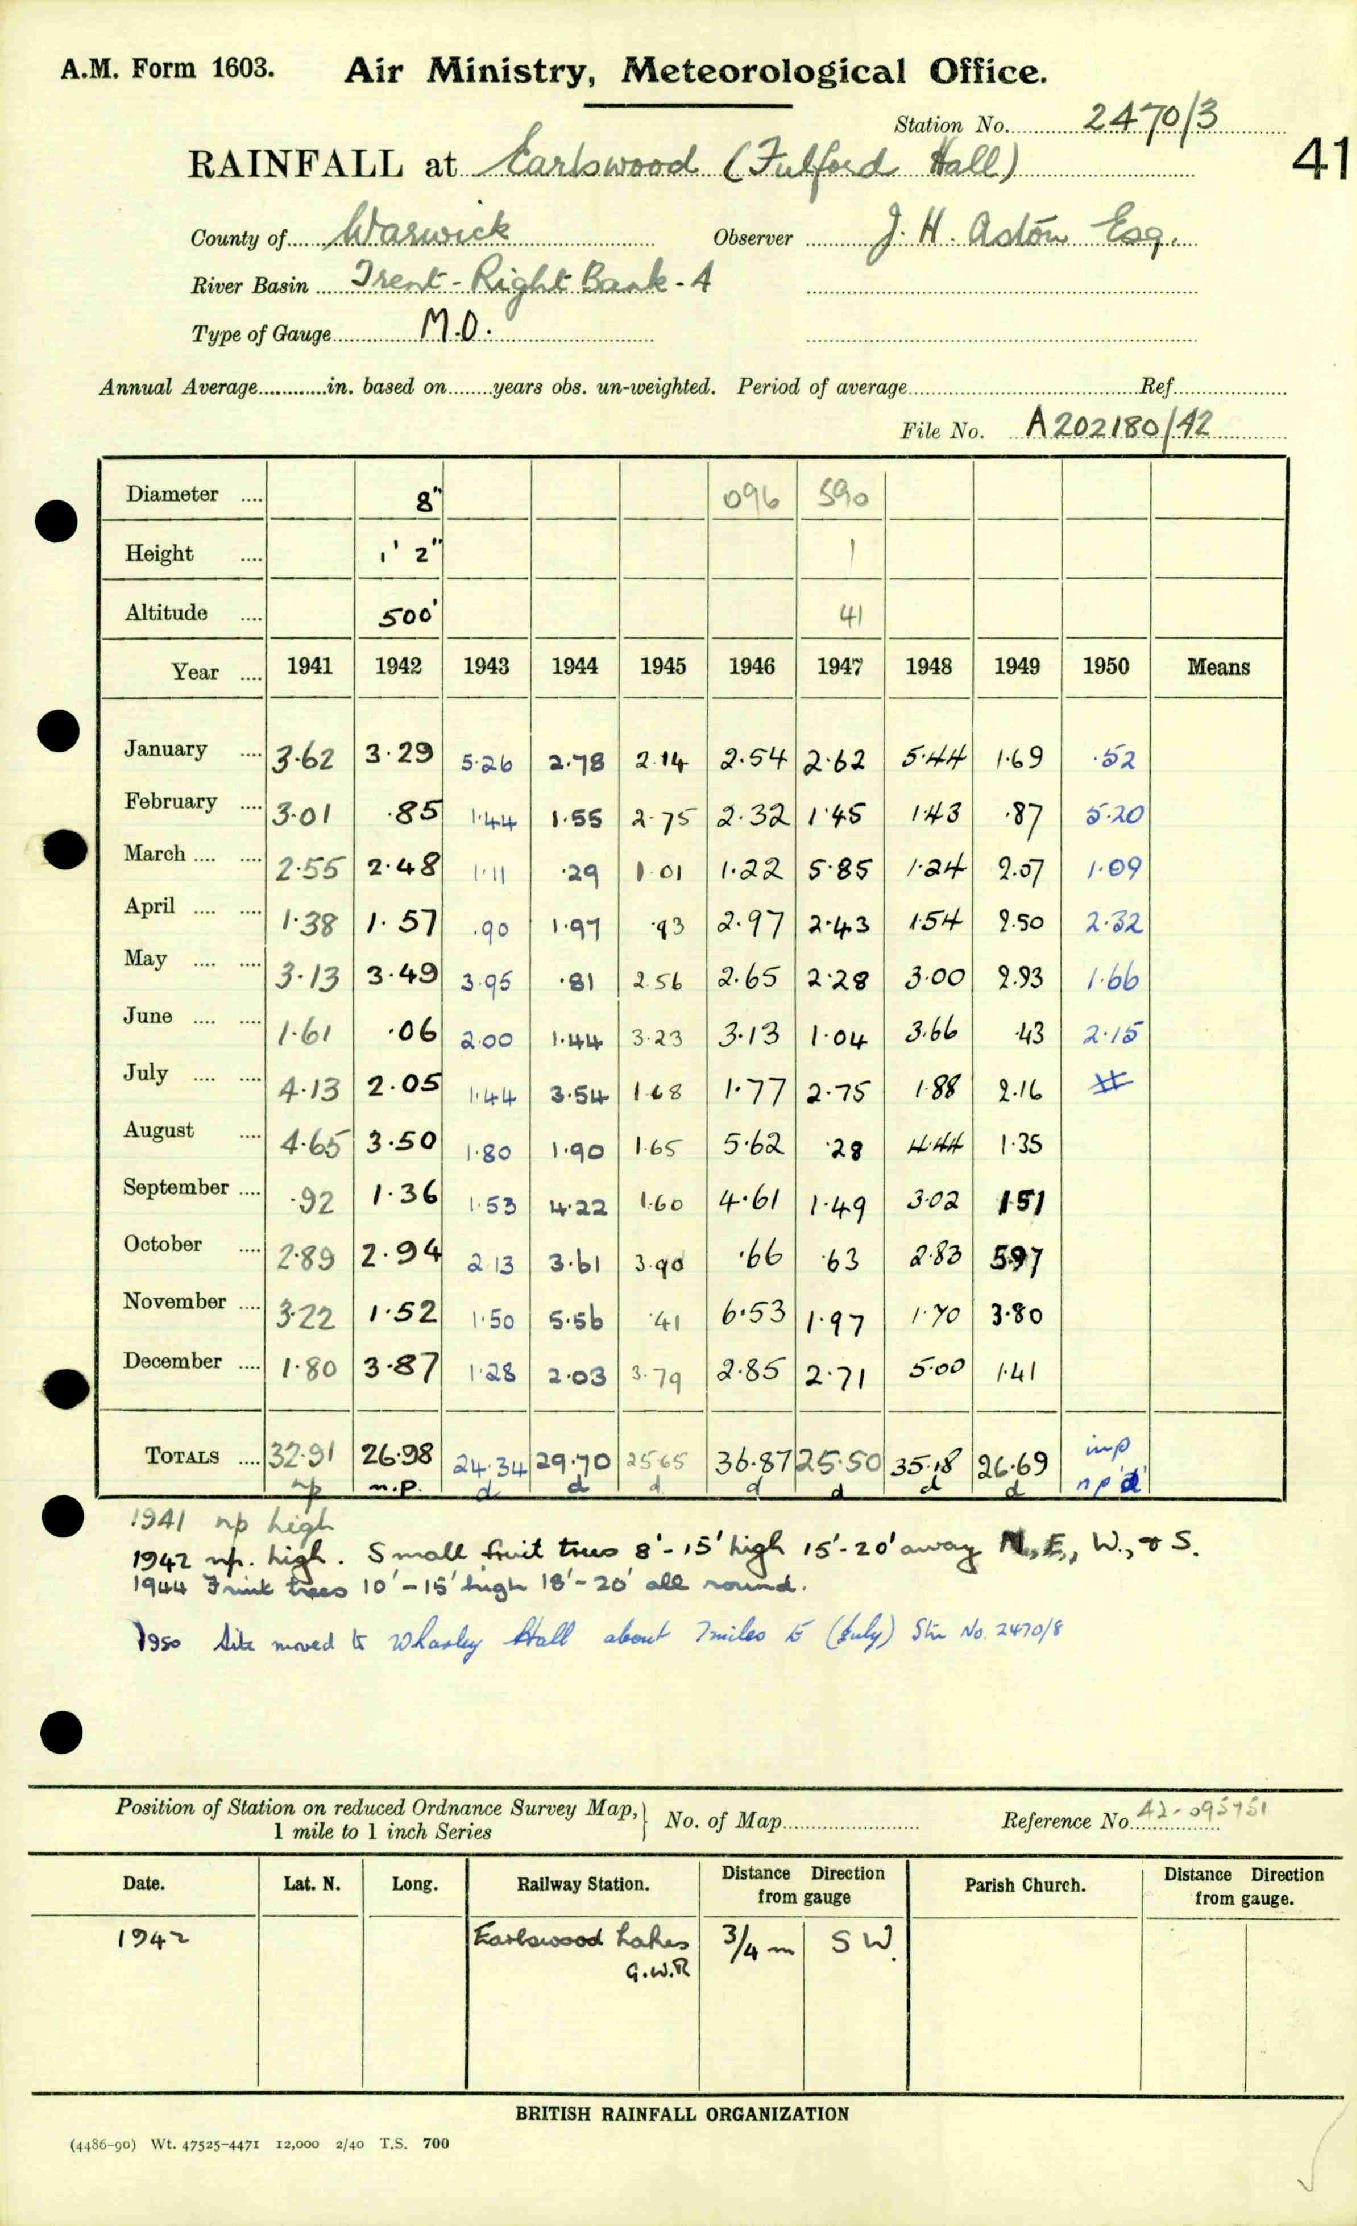 A.M. Form 1603. Air Ministry, Meteorological Office.
Station No. 2470/3
RAINFALL at Earlswood (Fulford Hall) 41
County of Warwick Observer J. H. Aston Esq.
River Basin Trent - Right Bank - 4
Type of Gauge M.O.
Annual Average in. based on years obs. un-weighted. Period of average Ref.
File No. A202180/42
Diameter 8" 096 590
Height 1' 2" 1
Altitude 500' 41
Year 1941 1942 1943 1944 1945 1946 1947 1948 1949 1950 Means
January 3.62 3.29 5.26 2.78 2.14 2.54 2.62 5.44 1.69 .52
February 3.01 .85 1.44 1.55 2.75 2.32 1.45 1.43 .87 5.20
March 2.55 2.48 1.11 .29 1.01 1.22 5.85 1.24 2.07 1.09
April 1.38 1.57 .90 1.97 .93 2.97 2.43 1.54 2.50 2.32
May 3.13 3.49 3.95 .81 2.56 2.65 2.28 3.00 2.93 1.66
June 1.61 .06 2.00 1.44 3.23 3.13 1.04 3.66 .43 2.15
July 4.13 2.05 1.44 3.54 1.68 1.77 2.75 1.88 2.16
August 4.65 3.50 1.80 1.90 1.65 5.62 .28 4.44 1.35
September .92 1.36 1.53 4.22 1.60 4.61 1.49 3.02 1.51
October 2.89 2.94 2.13 3.61 3.90 .66 .63 2.83 5.97
November 3.22 1.52 1.50 5.56 .41 6.53 1.97 1.70 3.80
December 1.80 3.87 1.28 2.03 3.79 2.85 2.71 5.00 1.41
TOTALS 32.91 26.98 24.34 29.70 25.65 36.87 25.50 35.18 26.69 imp
np n.p. d d d d d d d np'd'
1941 np high
1942 n.p. high. Small fruit trees 8'-15' high 15'-20' away N., E., W., & S.
1944 Fruit trees 10'-15' high 18'-20' all round.
1950 Site moved to Wharley Hall about 7 miles E (July) Stn No. 2470/8
Position of Station on reduced Ordnance Survey Map, No. of Map Reference No. 42-095751
1 mile to 1 inch Series
Date. Lat. N. Long. Railway Station. Distance Direction from gauge Parish Church. Distance Direction from gauge.
1942 Earlswood Lakes 3/4 m S W.
G.W.R
BRITISH RAINFALL ORGANIZATION
(4486-90) Wt. 47525-4471 12,000 2/40 T.S. 700